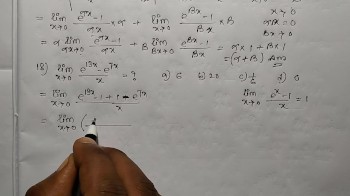 = lim x→0 (e^αx - 1)/αx × α + lim x→0 (e^Bx - 1)/Bx × B
x→0
αx = 0
Bx→0
= α lim x→0 (e^αx - 1)/αx + B lim (e^Bx - 1)/Bx = α×1 + B×1
= (α+B) Ans
18) lim x→0 (e^13x - e^7x)/x = ? a) 6 b) 20 d) 0
= lim x→0 (e^13x - 1 + 1 - e^7x)/x lim x→0 (e^x - 1)/x = 1
= lim x→0 (